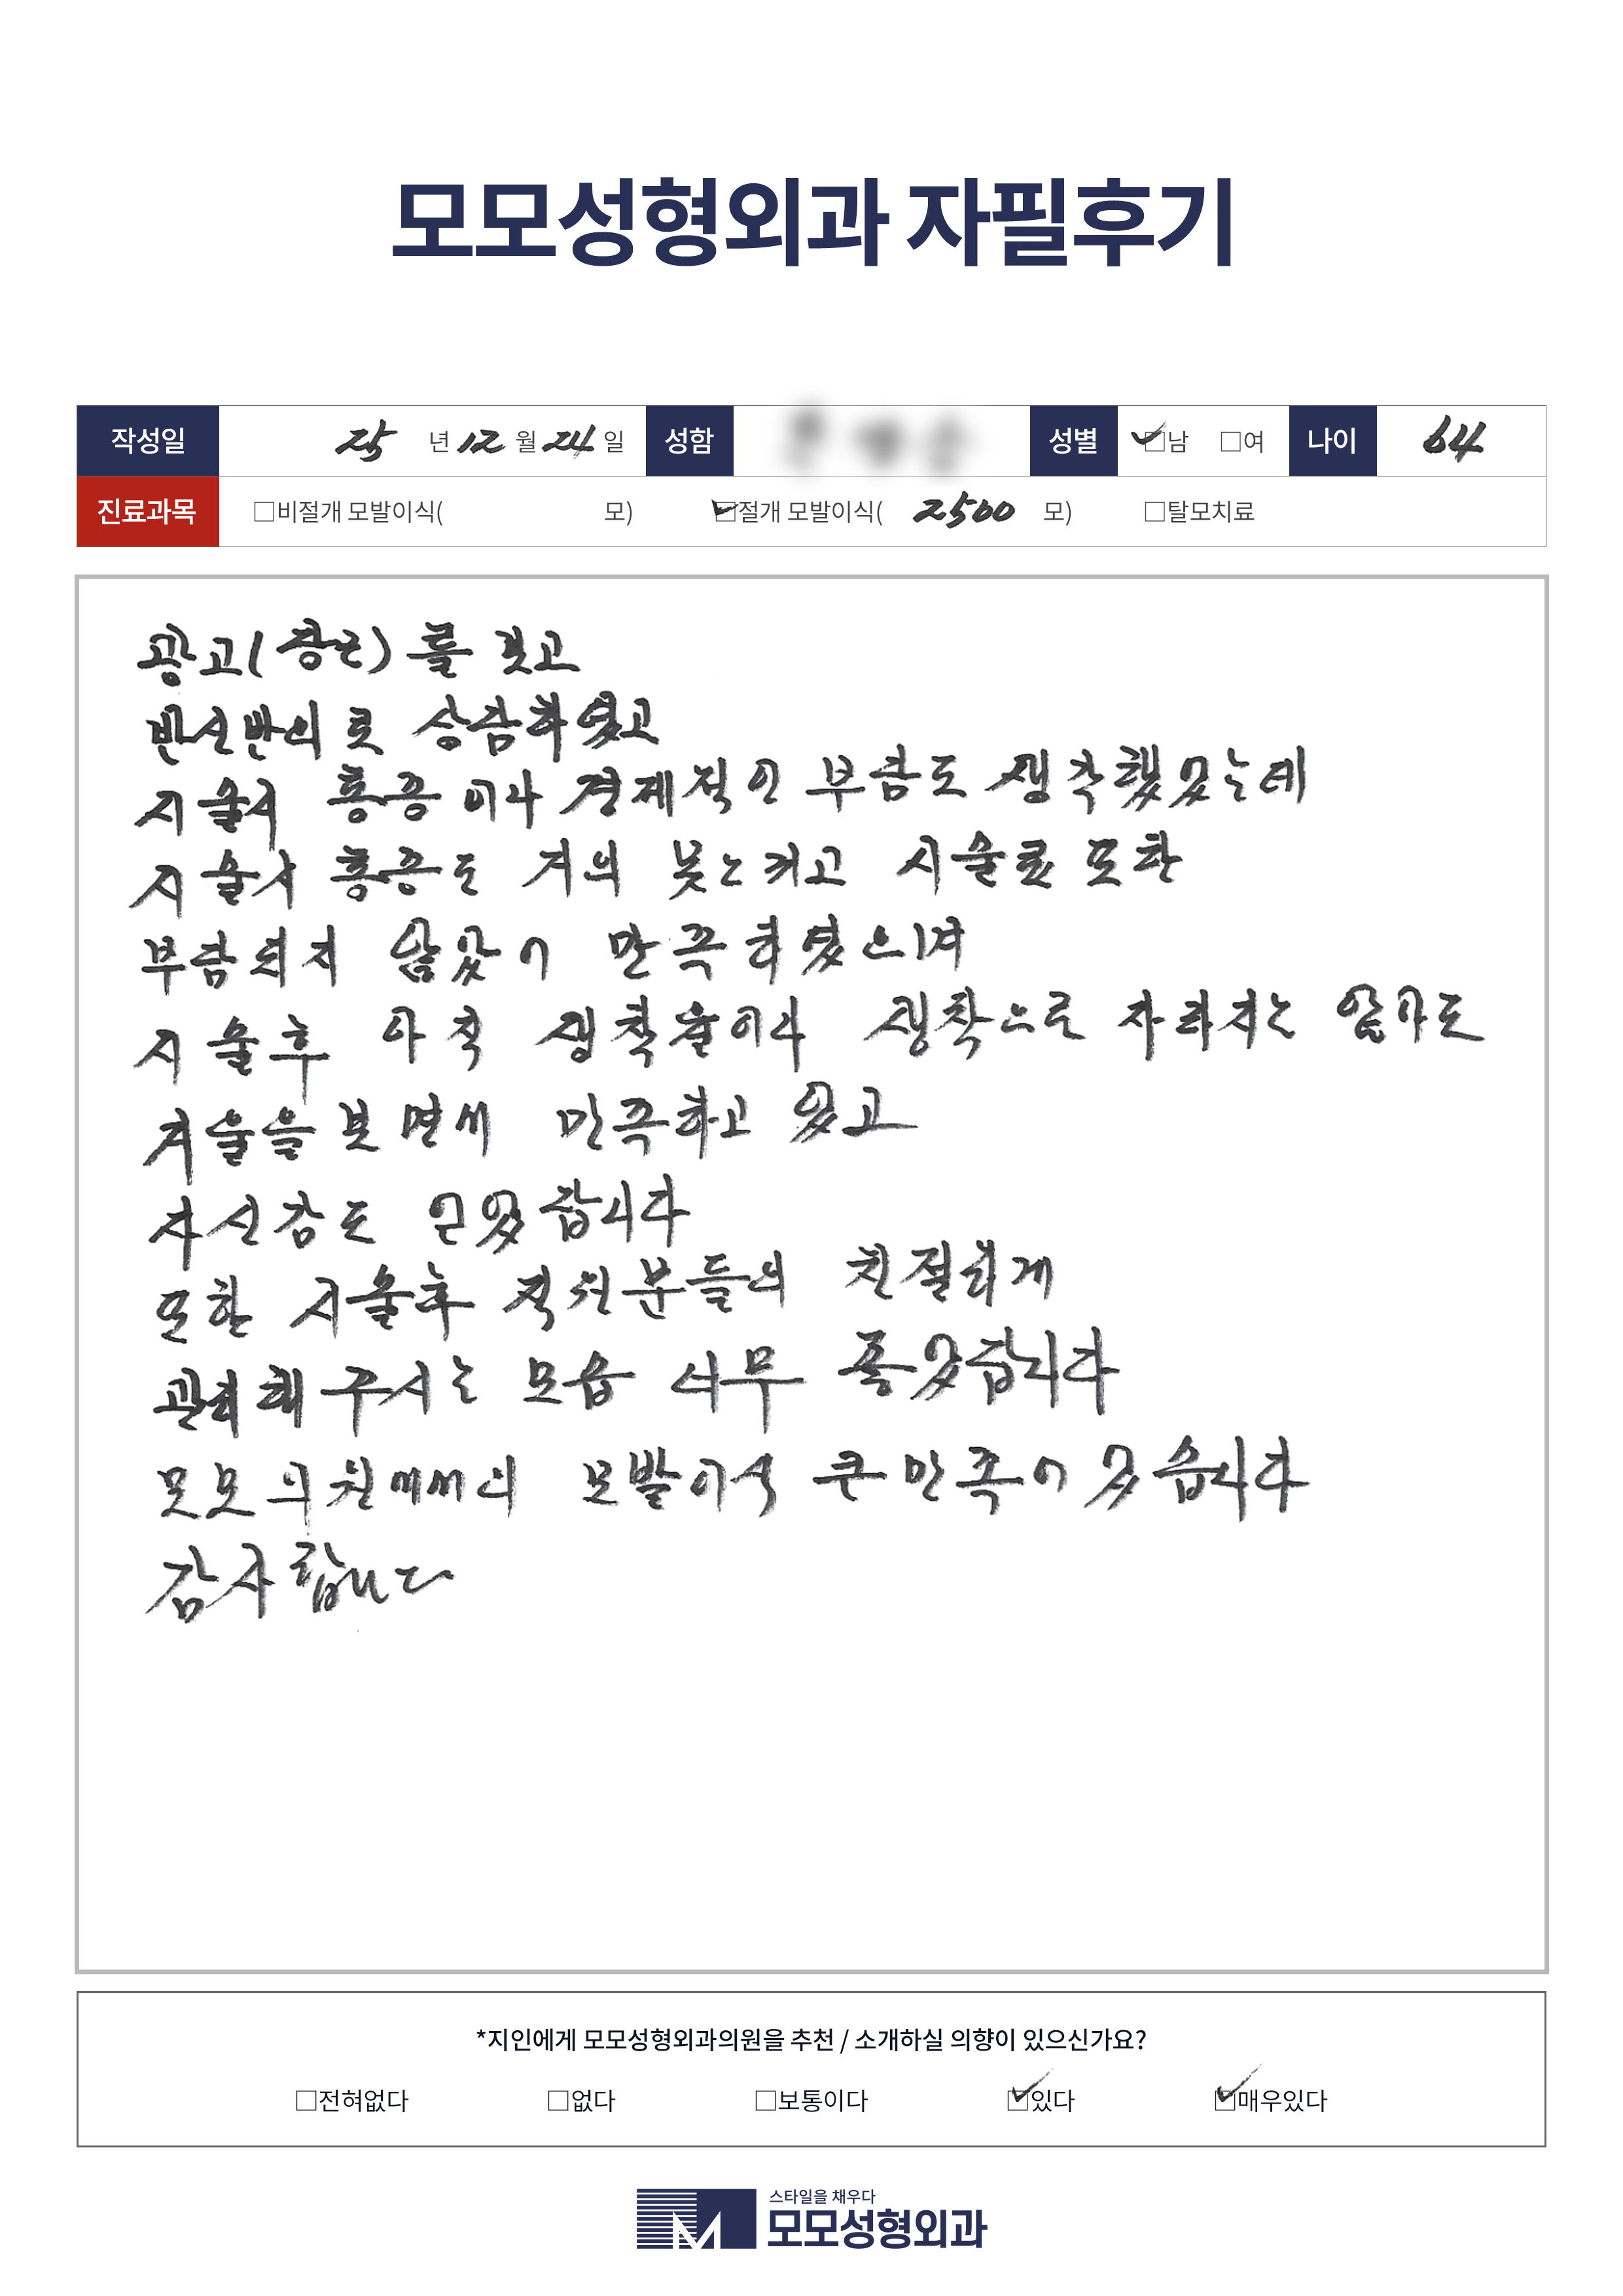 모모성형외과 자필후기
작성일 25 년 12 월 24 일 성함 성별 ☑남 □여 나이 64
진료과목 □비절개 모발이식( 모) ☑절개 모발이식( 2500 모) □탈모치료
광고( )를 보고
반신반의로 상담하였고
시술시 통증이나 경제적인 부담도 생각했었는데
시술시 통증도 거의 못느끼고 시술료 또한
부담되지 않았어 만족하였으며
시술후 아직 생착율이나 생착으로 자라지는 않아도
거울을 보면서 만족하고 있고
자신감도 얻었습니다
또한 시술후 직원분들의 친절하게
관리해 주시는 모습 너무 좋았습니다
모모의원에서의 모발이식 큰 만족이 였습니다
감사합니다
*지인에게 모모성형외과의원을 추천 / 소개하실 의향이 있으신가요?
□전혀없다 □없다 □보통이다 ☑있다 ☑매우있다
스타일을 채우다
모모성형외과